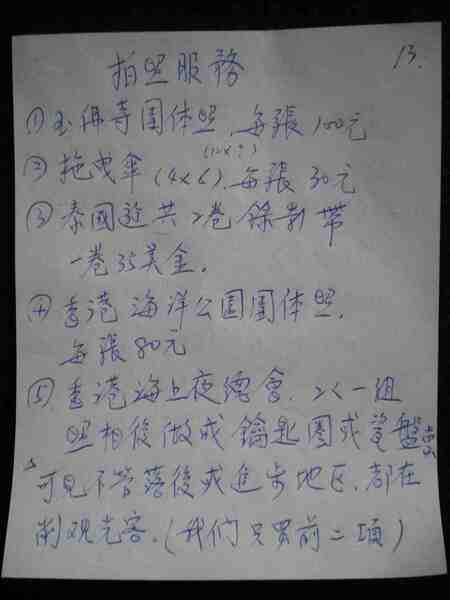 13.
拍照服務
① 玉佛寺團体照, 每張100元
(12x?)
② 拖曳傘(4x6), 每張30元
③ 泰國遊共2卷錄影帶
一卷35美金.
④ 香港海洋公園團体照.
每張80元
⑤ 香港海上夜總會. 2人一組
照相後做成鑰匙圈或瓷盤
可見不管落後或進步地区, 都在
削观光客. (我们只買前二項)